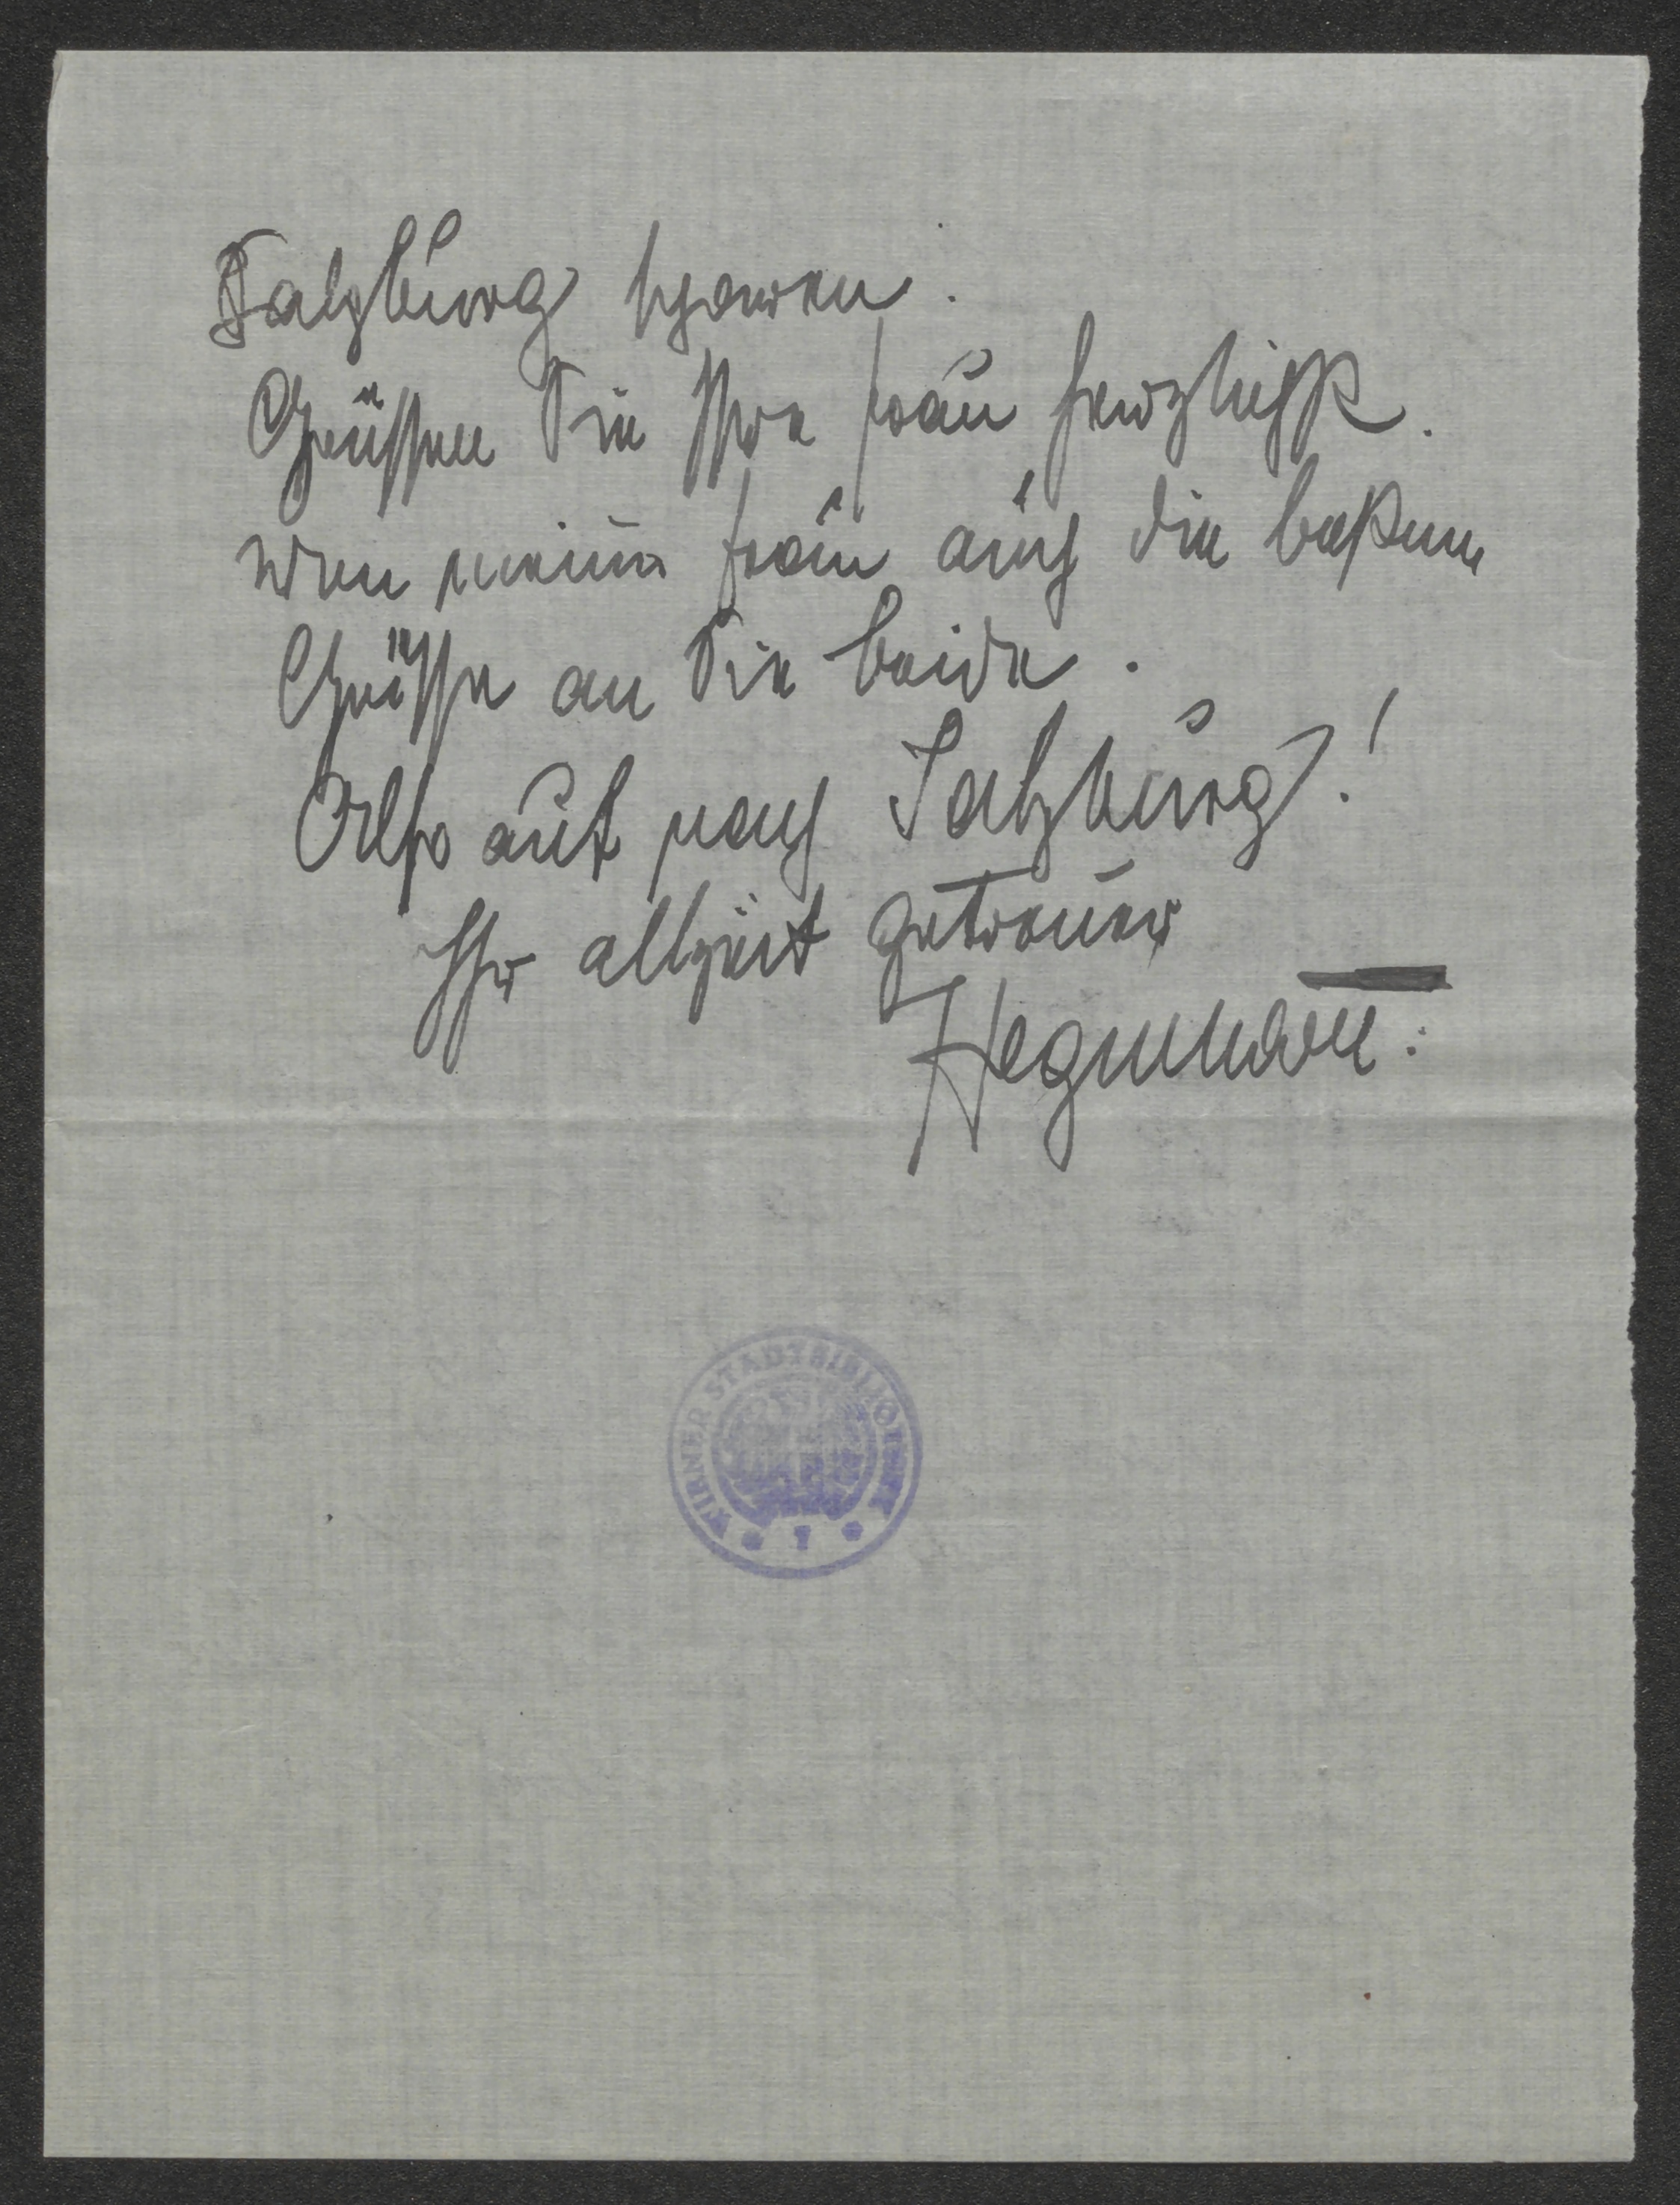 Salzburg
Grüssen Sie Ihre Frau herzlichst.
Von meiner Frau auch die besten
Grüsse an Sie beide.
Also auf nach Salzburg!
Ihr allzeit getreuer
Hegemann.
WIENER STADTBIBLIOTHEK